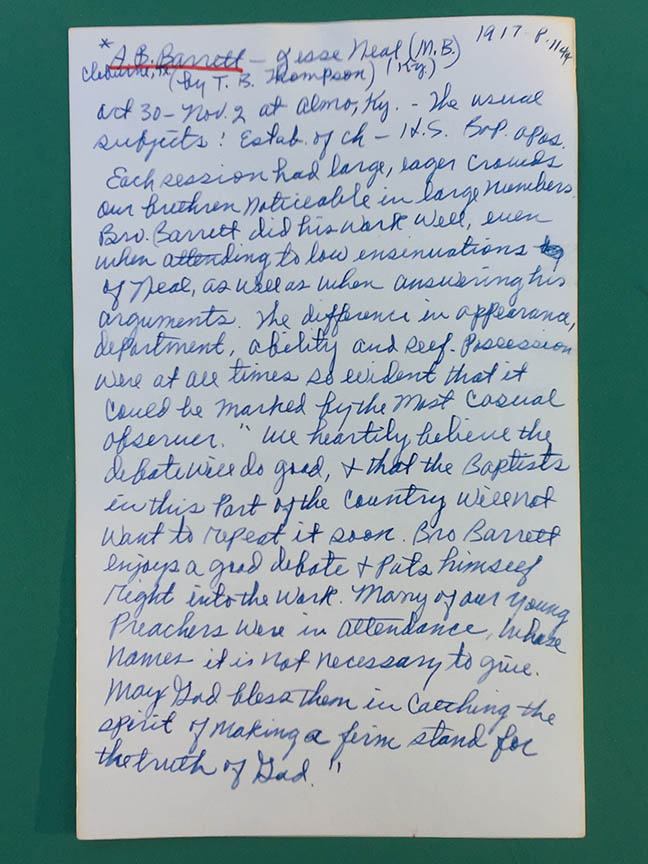 * A. B. Barrett - Jesse Neal (M.B.) 1917 - P. 1144
Cleburne, Tx (by T. B. Thompson) (Ky.)
Oct 30 - Nov. 2 at Almo, Ky. - The usual
subjects: Estab. of ch - H.S. Bap. apos.
Each session had large, eager crowds
our brethren noticeable in large numbers.
Bro. Barrett did his work well, even
when attending to low ensinuations
of Neal, as well as when answering his
arguments. The difference in appearance,
department, ability and self-possession
were at all times so evident that it
could be marked by the most casual
observer." We heartily believe the
debate will do good, & that the Baptists
in this part of the country will not
want to repeat it soon. Bro Barrett
enjoys a good debate & puts himself
right into the work. Many of our young
Preachers were in attendance, whose
names it is not necessary to give.
May God bless them in catching the
spirit of making a firm stand for
the truth of God."